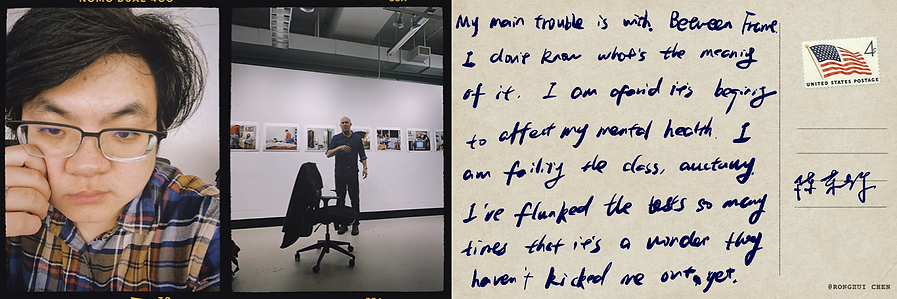 My main trouble is with Between Frame.
I don't know what's the meaning
of it. I am afraid it's begining
to affect my mental health. I
am failing the class,
I've flunked the tests so many
times that it's a wonder they
haven't kicked me out, yet.
4¢
UNITED STATES POSTAGE
陈荣辉
@RONGHUI CHEN